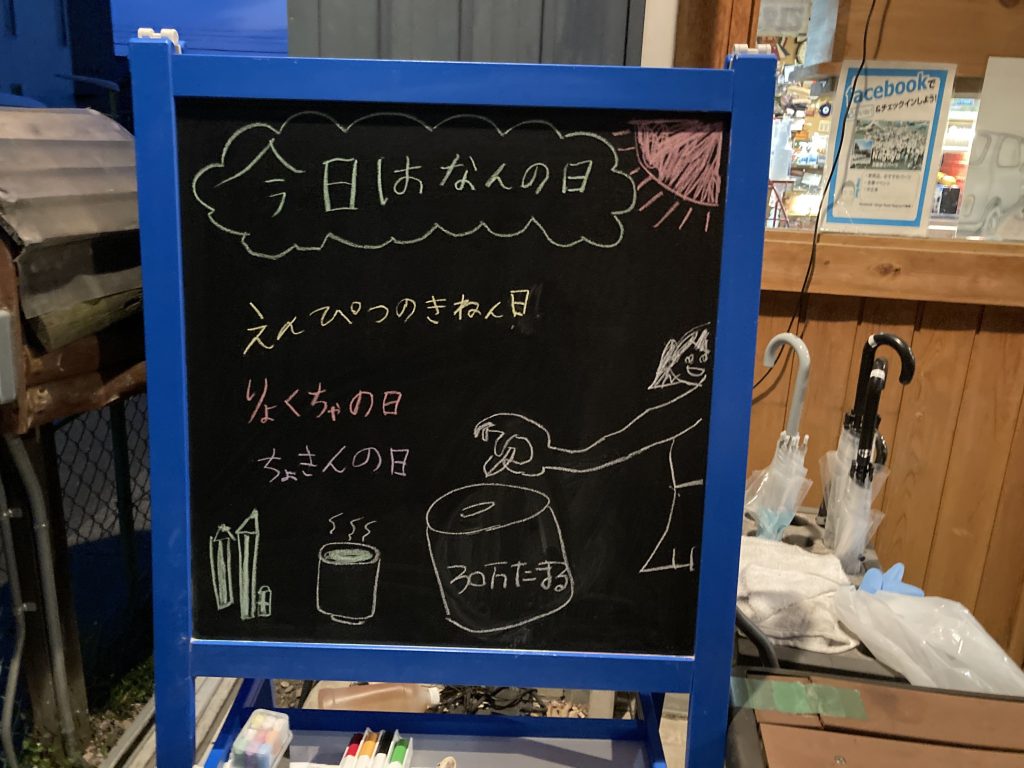 今日はなんの日
えんぴつのきねん日
りょくちゃの日
ちょきんの日
30万たまる
facebookで
&チェックインしよう!